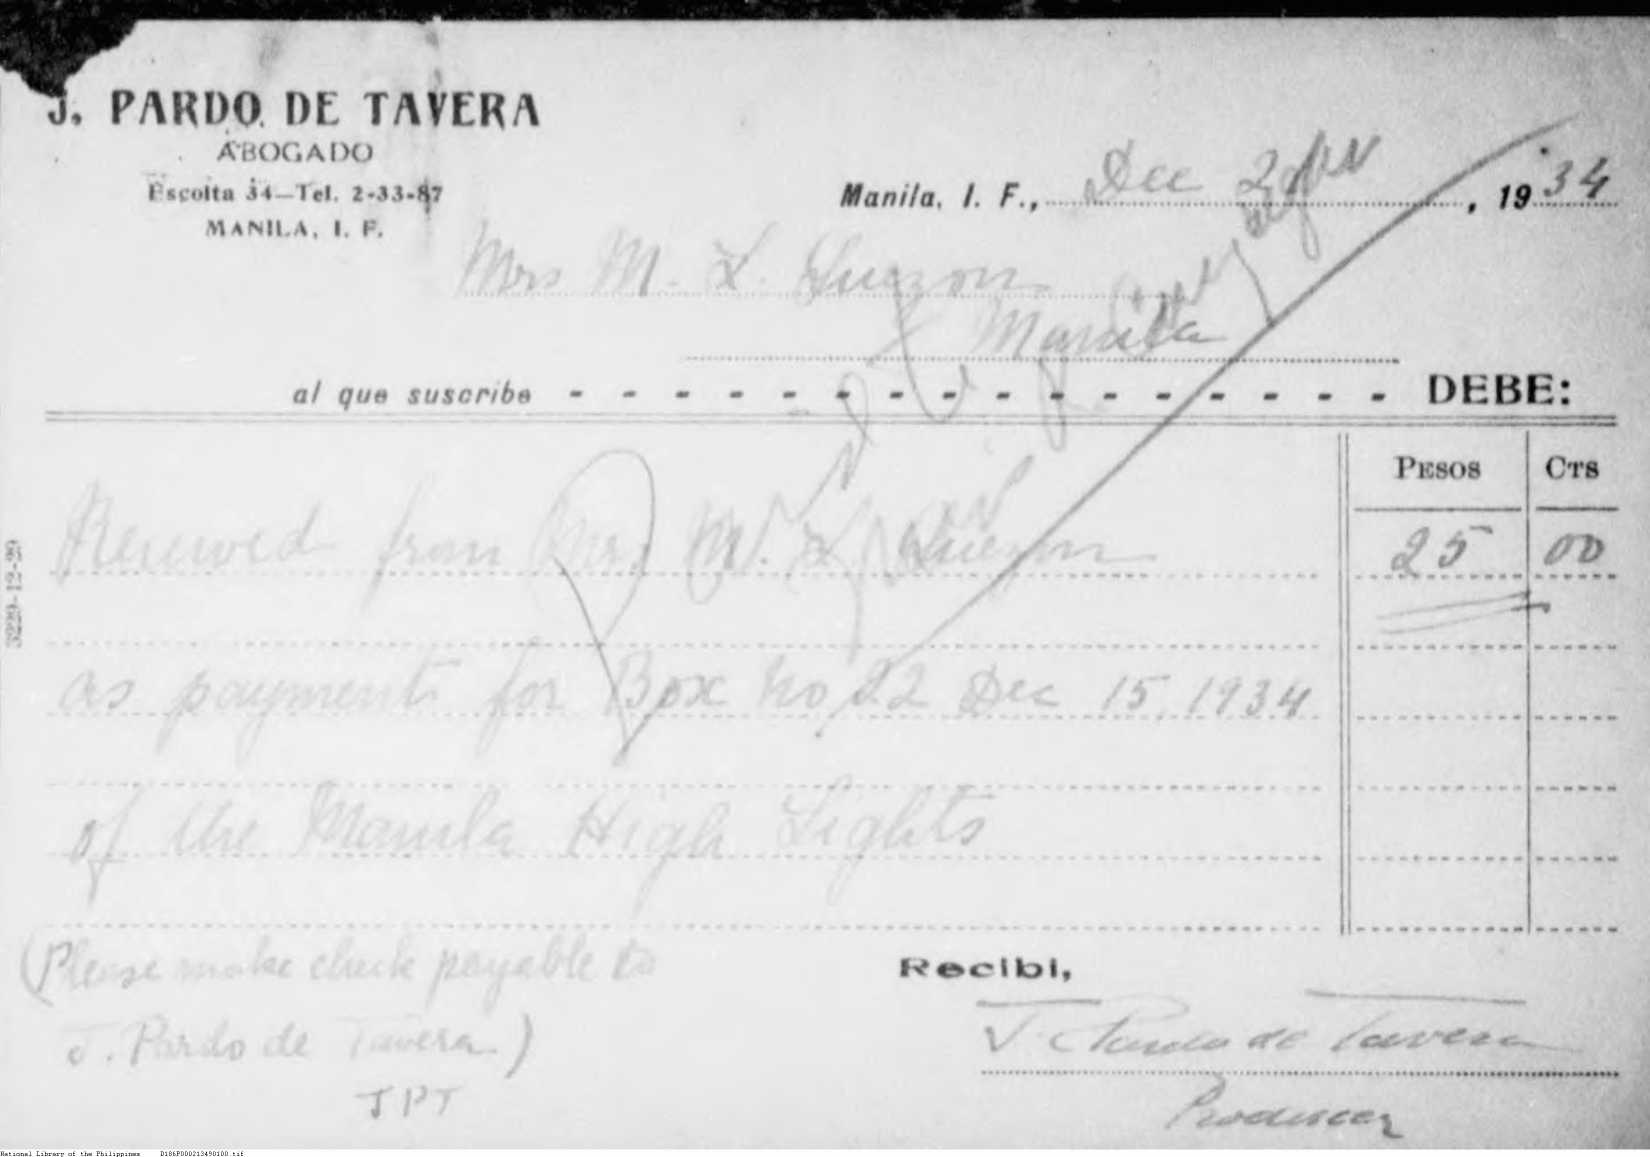 J. PARDO DE TAVERA
ABOGADO
Escolta 34—Tel. 2-33-87
MANILA, I. F.
Manila, I. F., Dec 19 34
Mrs M. L. Quezon
Manila
al que suscribe - - - - - - - - - - - - - - - - DEBE:
PESOS CTS
Received from Mrs. M. L. Quezon 25 00
as payment for Box No 22 Dec 15, 1934
of the Manila High Lights
(Please make check payable to
J. Pardo de Tavera)
JPT
Recibi,
J. Pardo de Tavera
Producer
3229-12-29
National Library of the Philippines D186P000213490100.tif